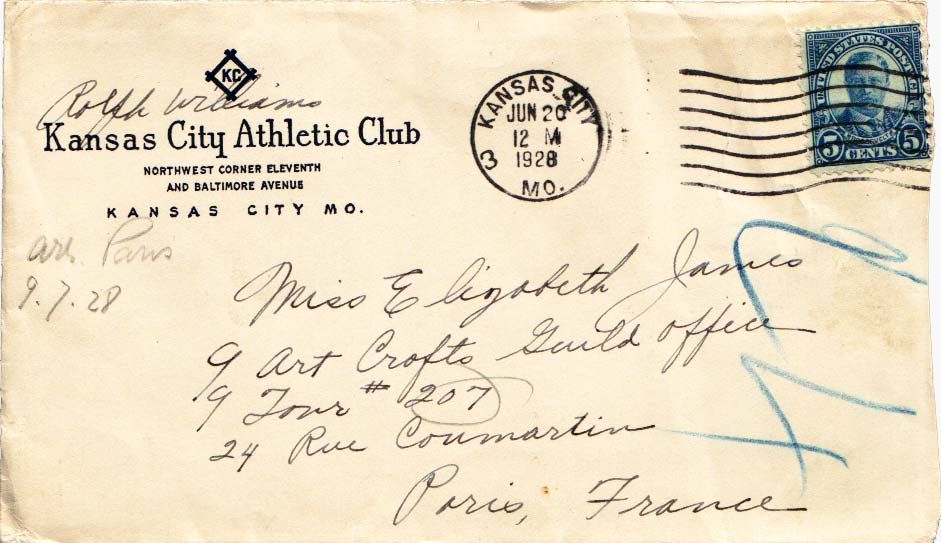 KC
Rolph Williams
Kansas City Athletic Club
NORTHWEST CORNER ELEVENTH
AND BALTIMORE AVENUE
KANSAS CITY MO.
KANSAS CITY
JUN 20
12 M
1928
MO.
3
UNITED STATES POSTAGE
5 CENTS 5
arr. Paris
9.7.28
Miss Elizabeth James
% Art Crafts Guild office
% Tour # 207
24 Rue Coumartin
Paris, France